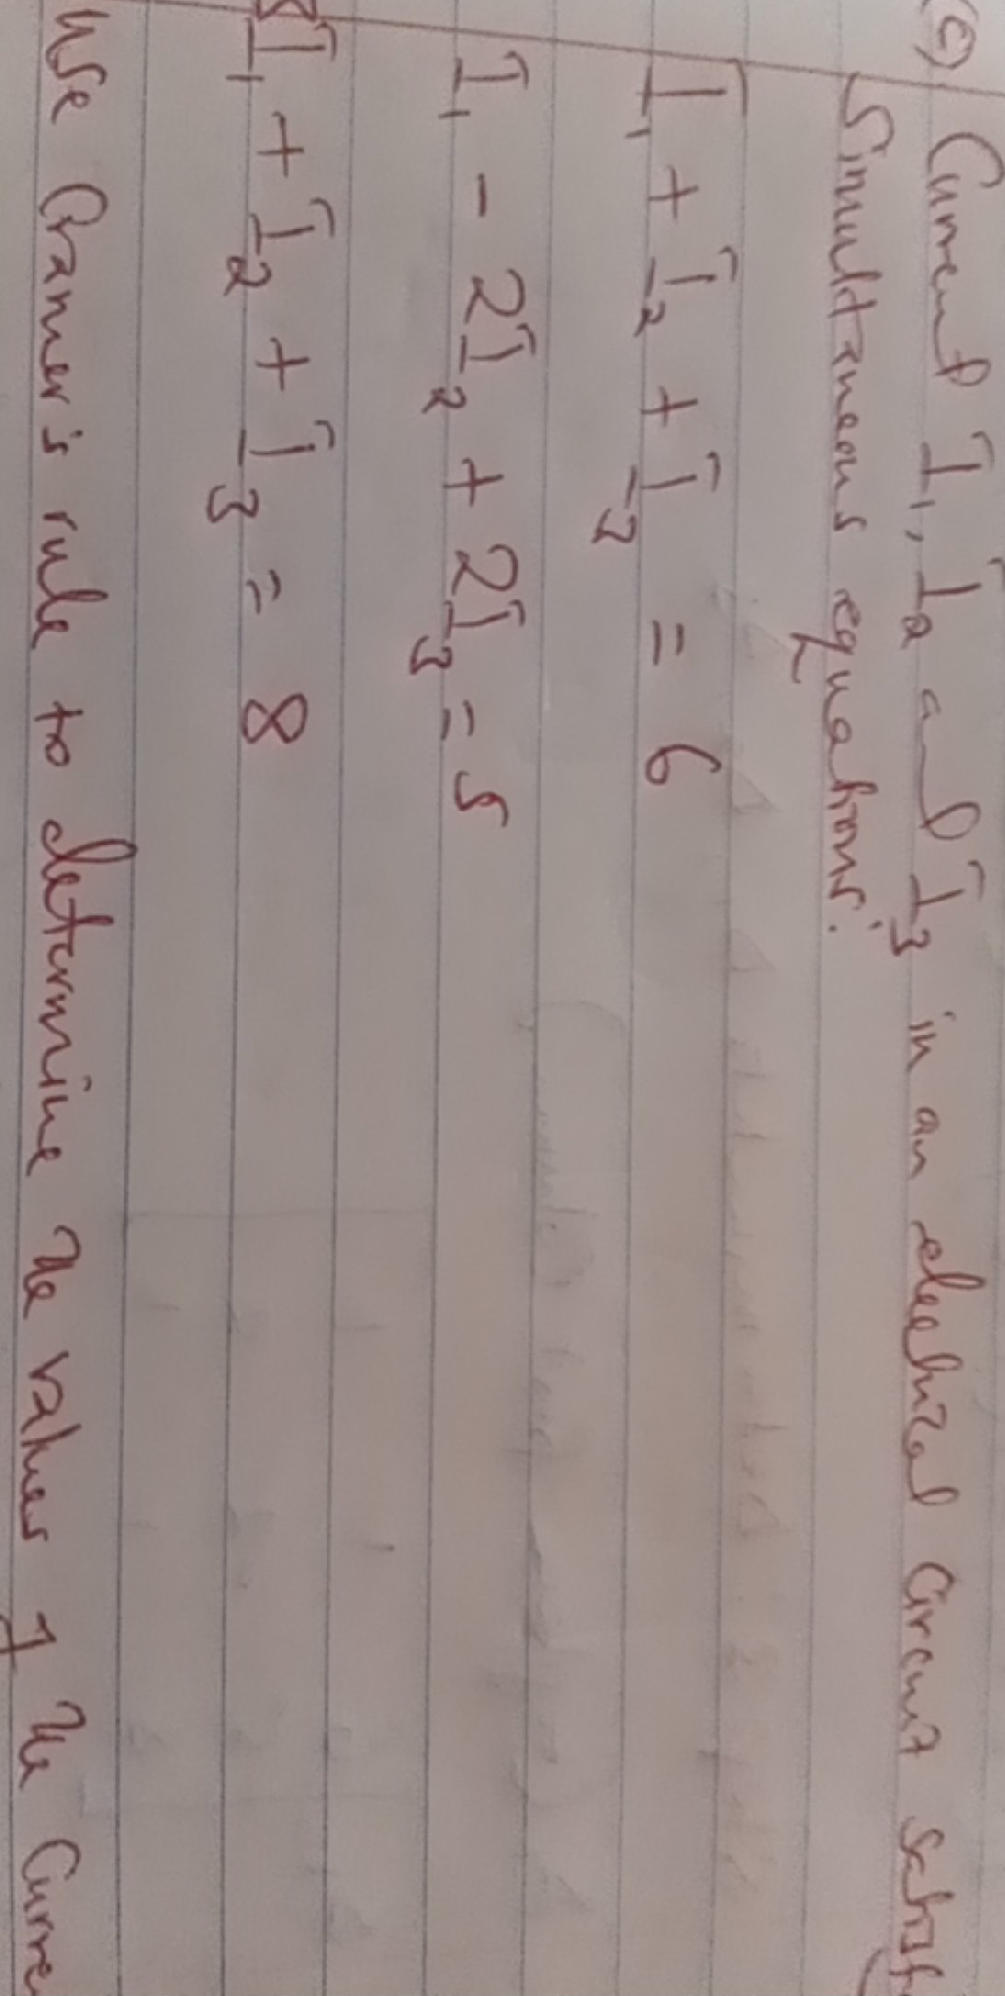 (c) Current I₁, I₂ and I₃ in an electrical circuit satisf
Simultaneous equations:
I₁ + I₂ + I₃ = 6
I₁ - 2I₂ + 2I₃ = 5
I₁ + I₂ + I₃ = 8
Use Cramer's rule to determine the values of the Curre